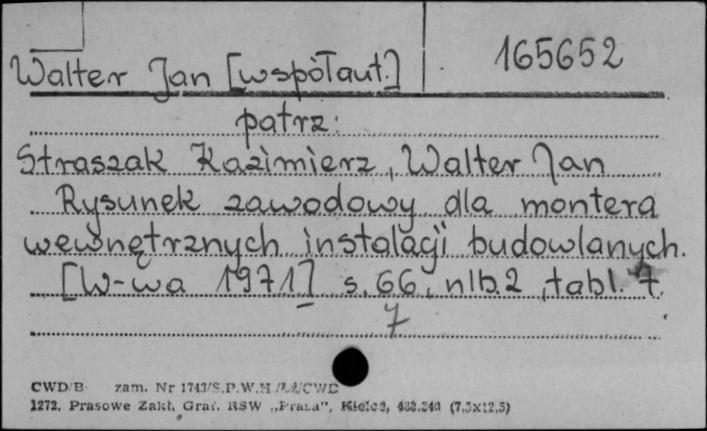 Walter Jan [współaut.] 165652
patrz:
Straszak Kazimierz, Walter Jan
Rysunek zawodowy dla montera
wewnętrznych instalacji budowlanych.
[W-wa 1971] s. 66, nlb. 2, tabl. 7.
7
CWD/B zam. Nr 1743/S.P.W.H
1272. Prasowe Zakł. Graf. RSW „Prasa", Kielce, (7,5x12,5)